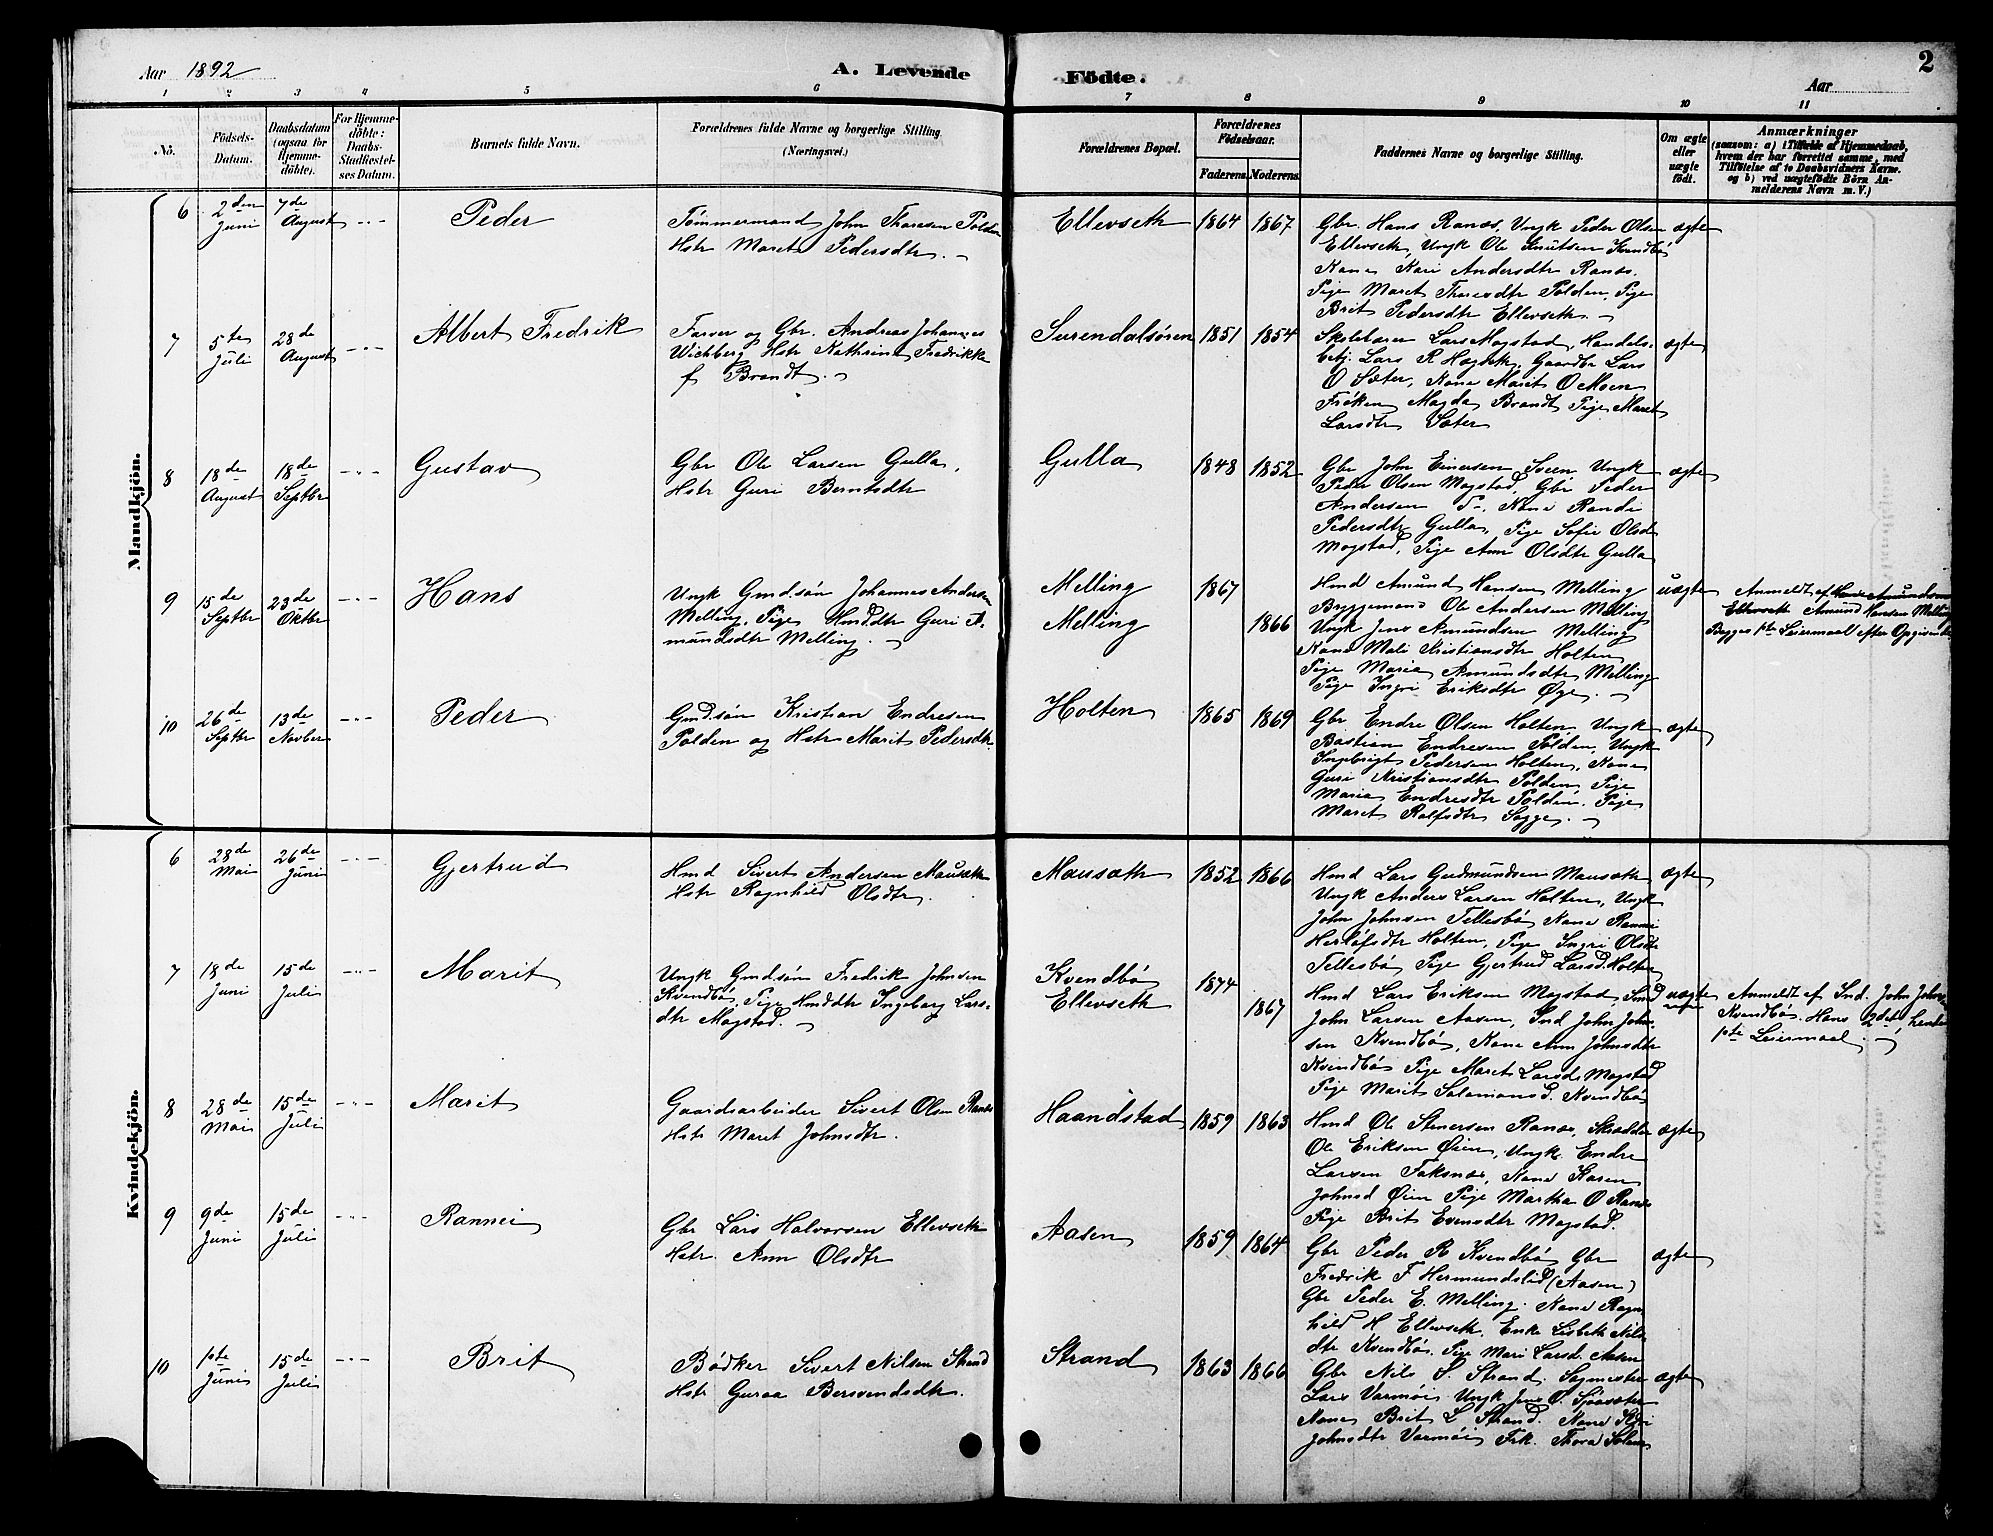 Aar 1892
A. Levende
Födte.
Aar
2
1 2 3 4 5 6 7 8 9 10 11
No.
Födsels-
Datum.
Daabsdatum
(ogsaa for
Hjemme-
döbte).
For Hjemme-
döbte:
Daabs-
Stadfæstel-
ses Datum.
Barnets fulde Navn.
Forældrenes fulde Navne og borgerlige Stilling.
(Næringsvei.)
Forældrenes Bopæl.
Forældrenes
Födselsaar.
Faderens. Moderens.
Faddernes Navne og borgerlige Stilling.
Om ægte
eller
uægte
födt.
Anmærkninger
(saasom: a) i Tilfælde af Hjemmedaab,
hvem der har forrettet samme, med
Tilföielse af to Daabsvidners Navne,
og b) ved uægtefödte Börn An-
melderens Navn m. V.)
Mandkjön.
6
2den
Juni
7de
August
Peder
Tömmermand John Thoresen Polden
Hstr Maret Pedersdtr.
Ellevseth
1864 1867
Gbr Hans Ranæs, Ungk Peder Olsen
Ellevseth, Ungk Ole Knutsen Kvendbö
Kone Kari Andersdtr Ranæs.
Pige Maret Thoresdtr Polden, Pige
Brit Pedersdtr Ellevseth.
ægte
7
5te
Juli
28de
August
Albert Fredrik
Farver og Gbr. Andreas Johannes
Wichberg Hstr Kathrine Fredrikke
f Brandt.
Surendalsören
1851 1854
Skolelærer Lars Mogstad, Handels-
betj. Lars R Hagbek, Gaardbr Lars
O Sæter, Kone Marit O Moen
Fröken Magda Brandt Pige Maret
Larsdtr Sæter
ægte
8
18de
August
18de
Septbr
Gustav
Gbr Ole Larsen Gulla,
Hstr Guri Berntsdtr
Gulla
1848 1852
Gbr John Einersen Ungk
Peder Olsen Mogstad, Gbr Peder
Andersen Kone Randi
Pedersdtr Gulla, Pige Sofie Olsd
Mogstad, Pige Ane Olsdtr Gulla
ægte
9
15de
Septbr
23de
Oktbr
Hans
Ungk Gmdsön Johannes Andersen
Melling, Pige Hmddtr Guri A-
mundsdtr Melling.
Melling
Melling
1867
1866
Hmd Amund Hansen Melling
Bryggemand Ole Andersen Melling
Ungk Jens Amundsen Melling
Kone Mali Kristiansdtr Holten
Pige Marie Amundsdtr Melling
Pige Ingri Eriksdtr Öye.
uægte
Anmeldt af
Ellevseth Amund Hansen Melling
Begges 1ste Leiermaal efter Opgivende
10
26de
Septbr
13de
Novber
Peder
Gmdsön Kristian Endresen
Polden og Hstr Marit Pedersdtr
Holten
1865 1869
Gbr Endre Olsen Holten, Ungk
Bastian Endresen Polden, Ungk
Ingebrigt Pedersen Holten, Kone
Guri Kristiansdtr Polden, Pige
Marie Endresdtr Polden. Pige
Maret Rolfsdtr Sogge.
ægte
Kvindekjön.
6
28de
Mai
26de
Juni
Gjertrud
Hmd Sivert Andersen Mausæth
Hstr Ragnhild Olsdtr.
Mausæth
1852 1866
Hmd Lars Gudmundsen Mausæth
Ungk Anders Larsen Holten, Ungk
John Johnsen Tellesbö Kone Rannei
Herlofsdtr Holten, Pige Ingri Olsdtr
Tellesbö Pige Gjertrud Larsd. Holten
ægte
7
18de
Juni
15de
Juli
Marit
Ungk Gmdsön Fredrik Johnsen
Kvendbö, Pige Hmddtr Ingeborg Lars-
dtr Mogstad.
Kvendbö
Ellevseth
1874
1867
Hmd Lars Eriksen Mogstad, Smd
John Larsen Aasen, Ind John John-
sen Kvendbö, Kone Ann Johnsdtr
Kvendbö Pige Maret Larsd. Mogstad
Pige Marit Salamonsd. Kvendbö
uægte
Anmeldt af Ind. John Johnsen
Kvendbö. Hans 2det, hendes
1ste Leiermaal.
8
28de
Mai
15de
Juli
Marit
Gaardsarbeider Sivert Olsen Ranæs
Hstr Maret Johnsdtr.
Haandstad
1859 1863
Hmd Ole Stenersen Ranæs, Skrædder
Ole Eriksen Öien, Ungk. Endre
Larsen Faksnæs, Kone Karen
Johnsd Öien Pige Martha O Ranæs
Pige Brit Evensdtr Mogstad.
ægte
9
9de
Juni
15de
Juli
Rannei
Gbr Lars Halvorsen Ellevseth
Hstr. Ann Olsdtr
Aasen
1859 1864
Gbr Peder R Kvendbö Gbr
Fredrik F Hermundslid (Aasen)
Gbr Peder E. Melling. Kone Ragn-
hild H Ellevseth, Enke Lisbeth Nils-
dtr Kvendbö. Pige Mari Larsd. Aasen
ægte
10
1ste
Juni
15de
Juli
Brit
Bödker Sivert Nilsen Strand
Hstr Guraa Bersvendsdtr.
Strand
1863 1866
Gbr Nils S. Strand. Sagmester
Lars Varmöi Ungk Jens O.
Kone Brit L Strand. Kone
Johnsdtr Varmöi Frk. Thora
ægte